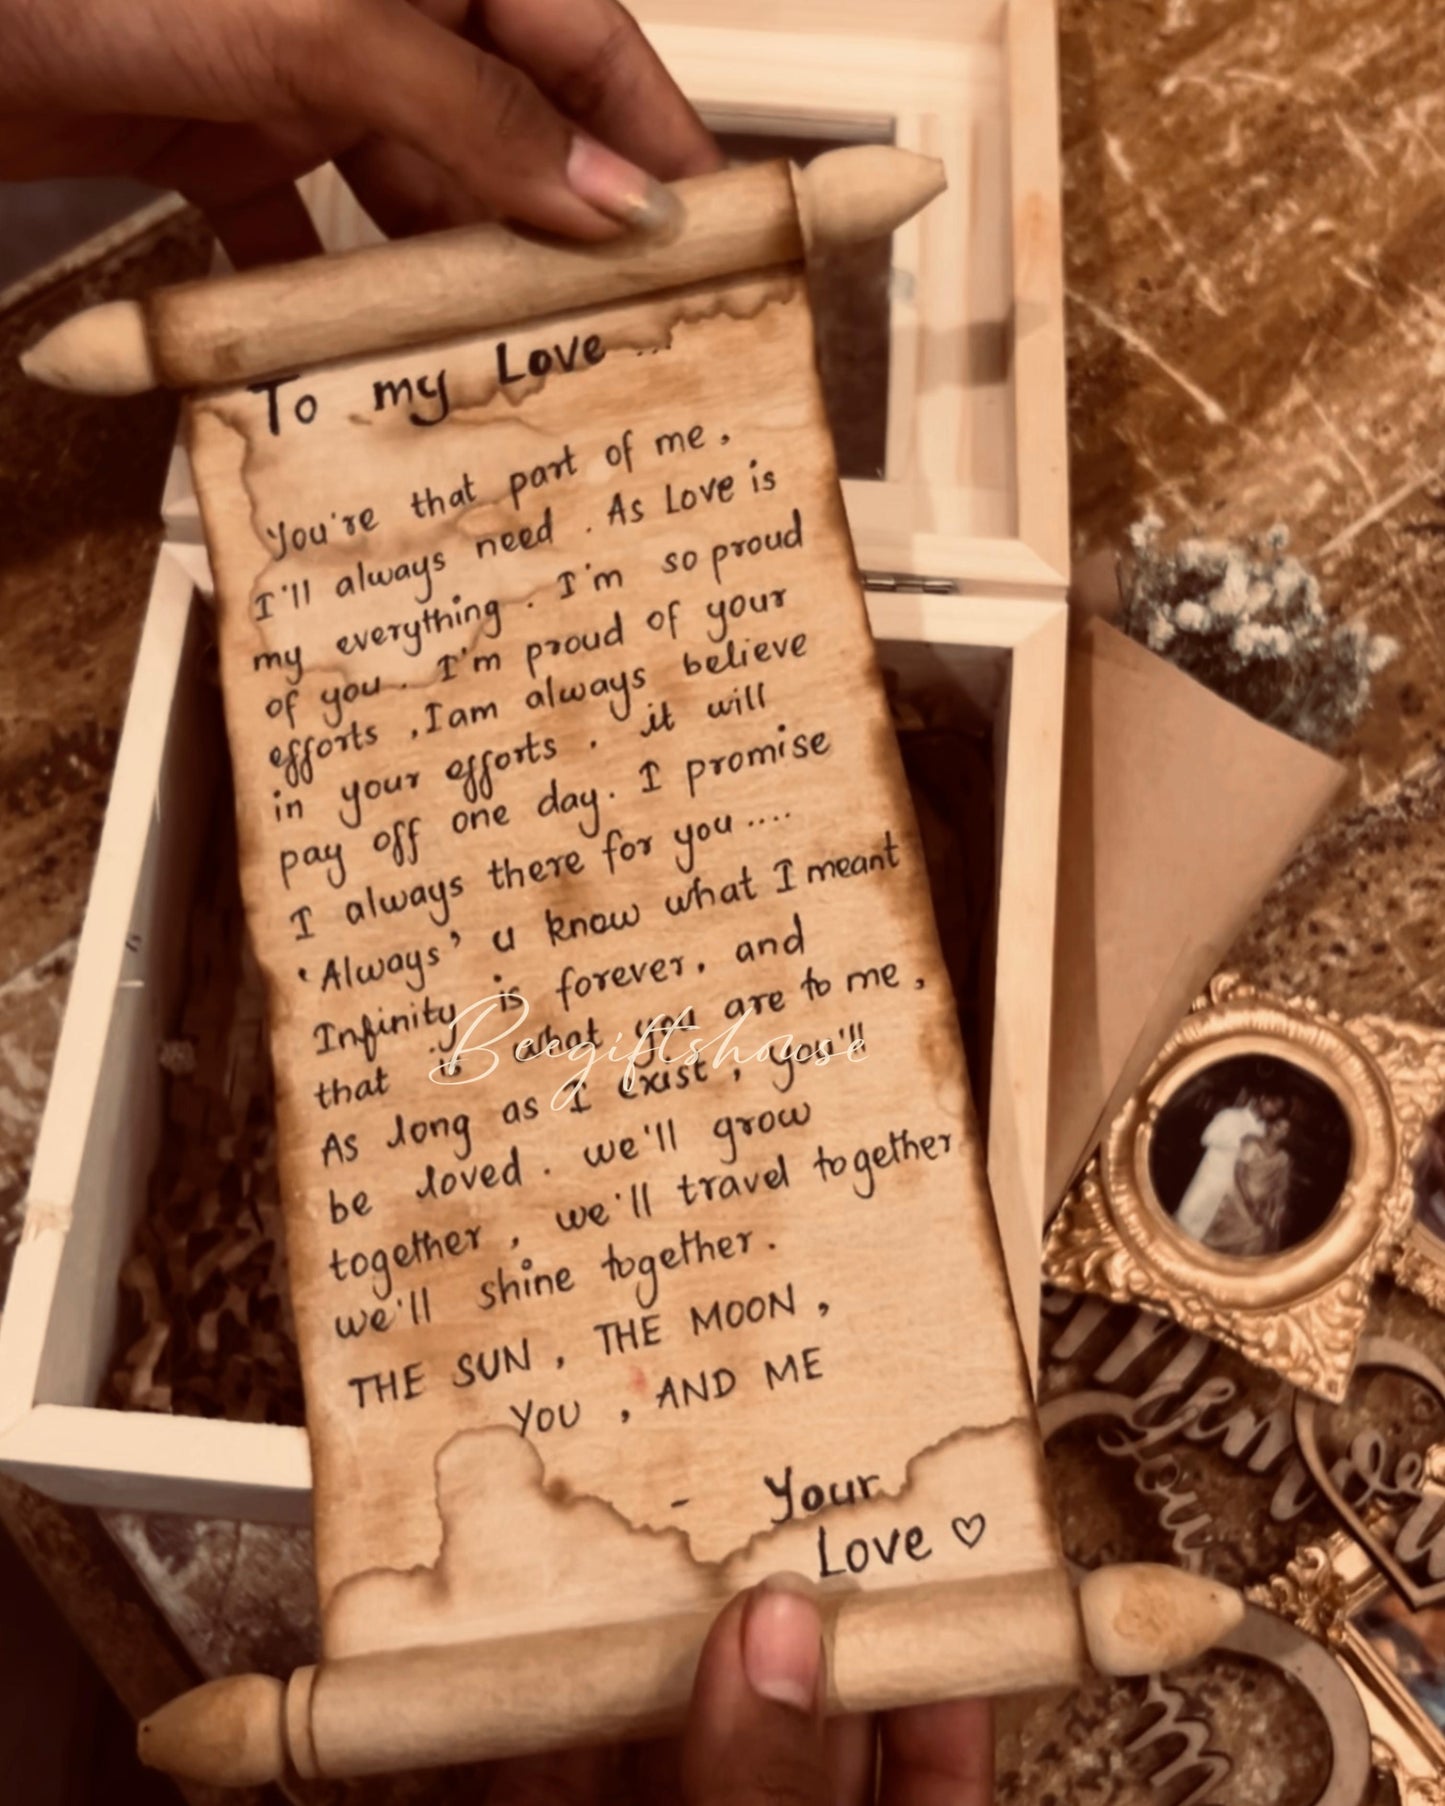 To my Love ...
You're that part of me,
I'll always need. As Love is
my everything. I'm so proud
of you. I'm proud of your
efforts, I am always believe
in your efforts. it will
pay off one day. I promise
I always there for you....
'Always' u know what I meant
Infinity is forever, and
that is what you are to me,
As long as I exist, you'll
be loved. we'll grow
together, we'll travel together
we'll shine together.
THE SUN, THE MOON,
YOU, AND ME
- Your
Love ♡
Beegiftshouse